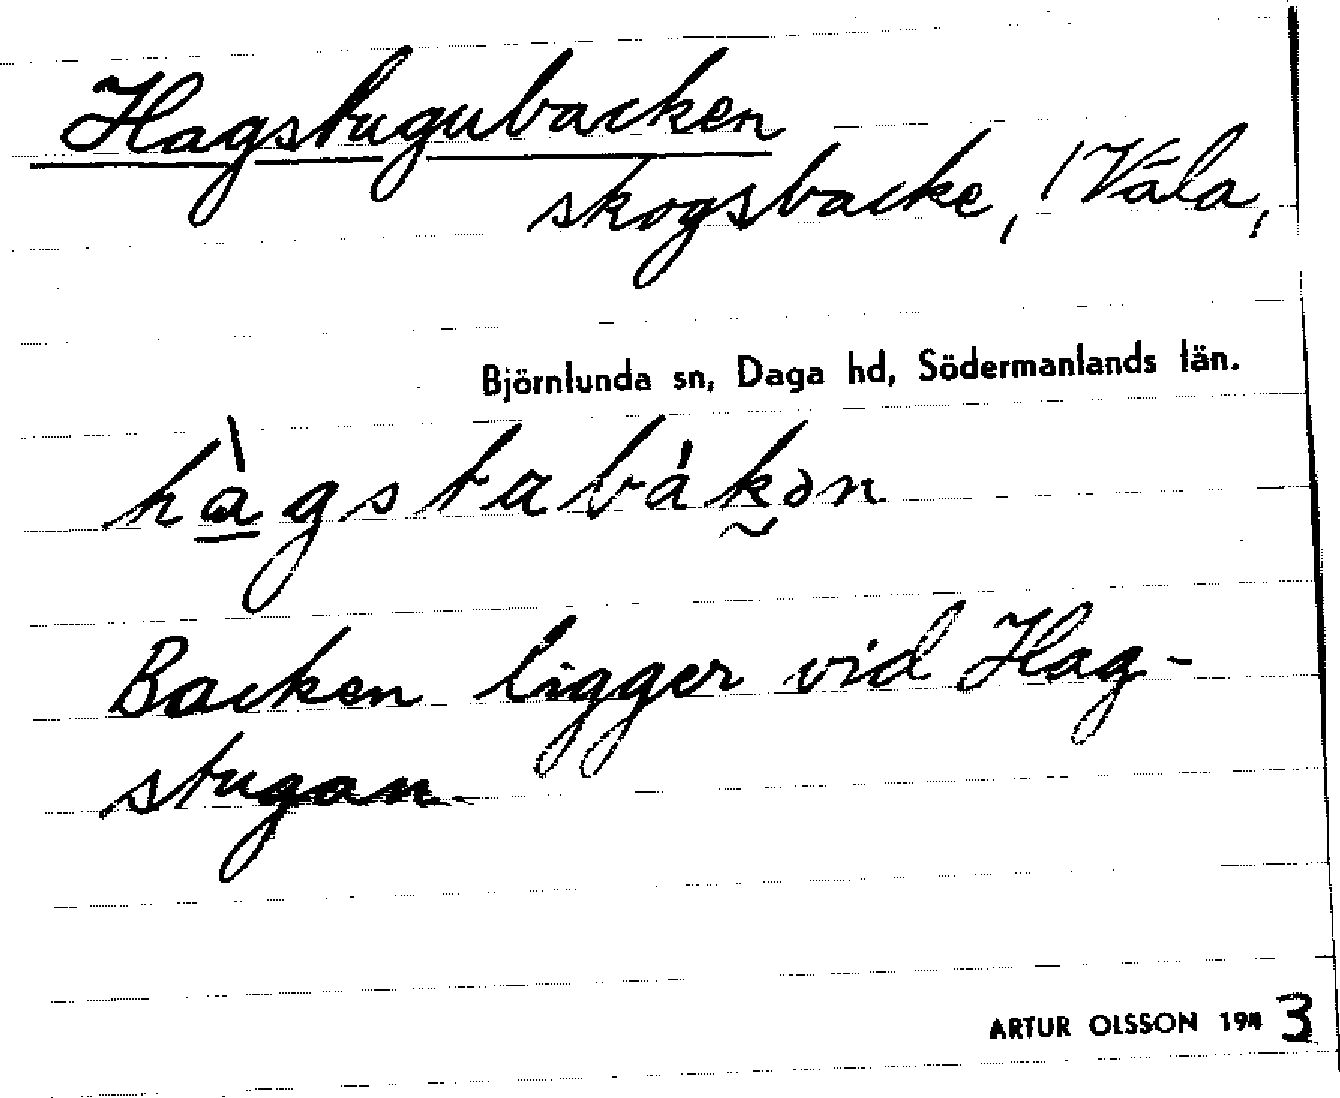 Hagstugubacken
skogsbacke, /Våla,
Björnlunda sn, Daga hd, Södermanlands län.
Backen ligger vid Hag-
stugan.
ARTUR OLSSON 1943